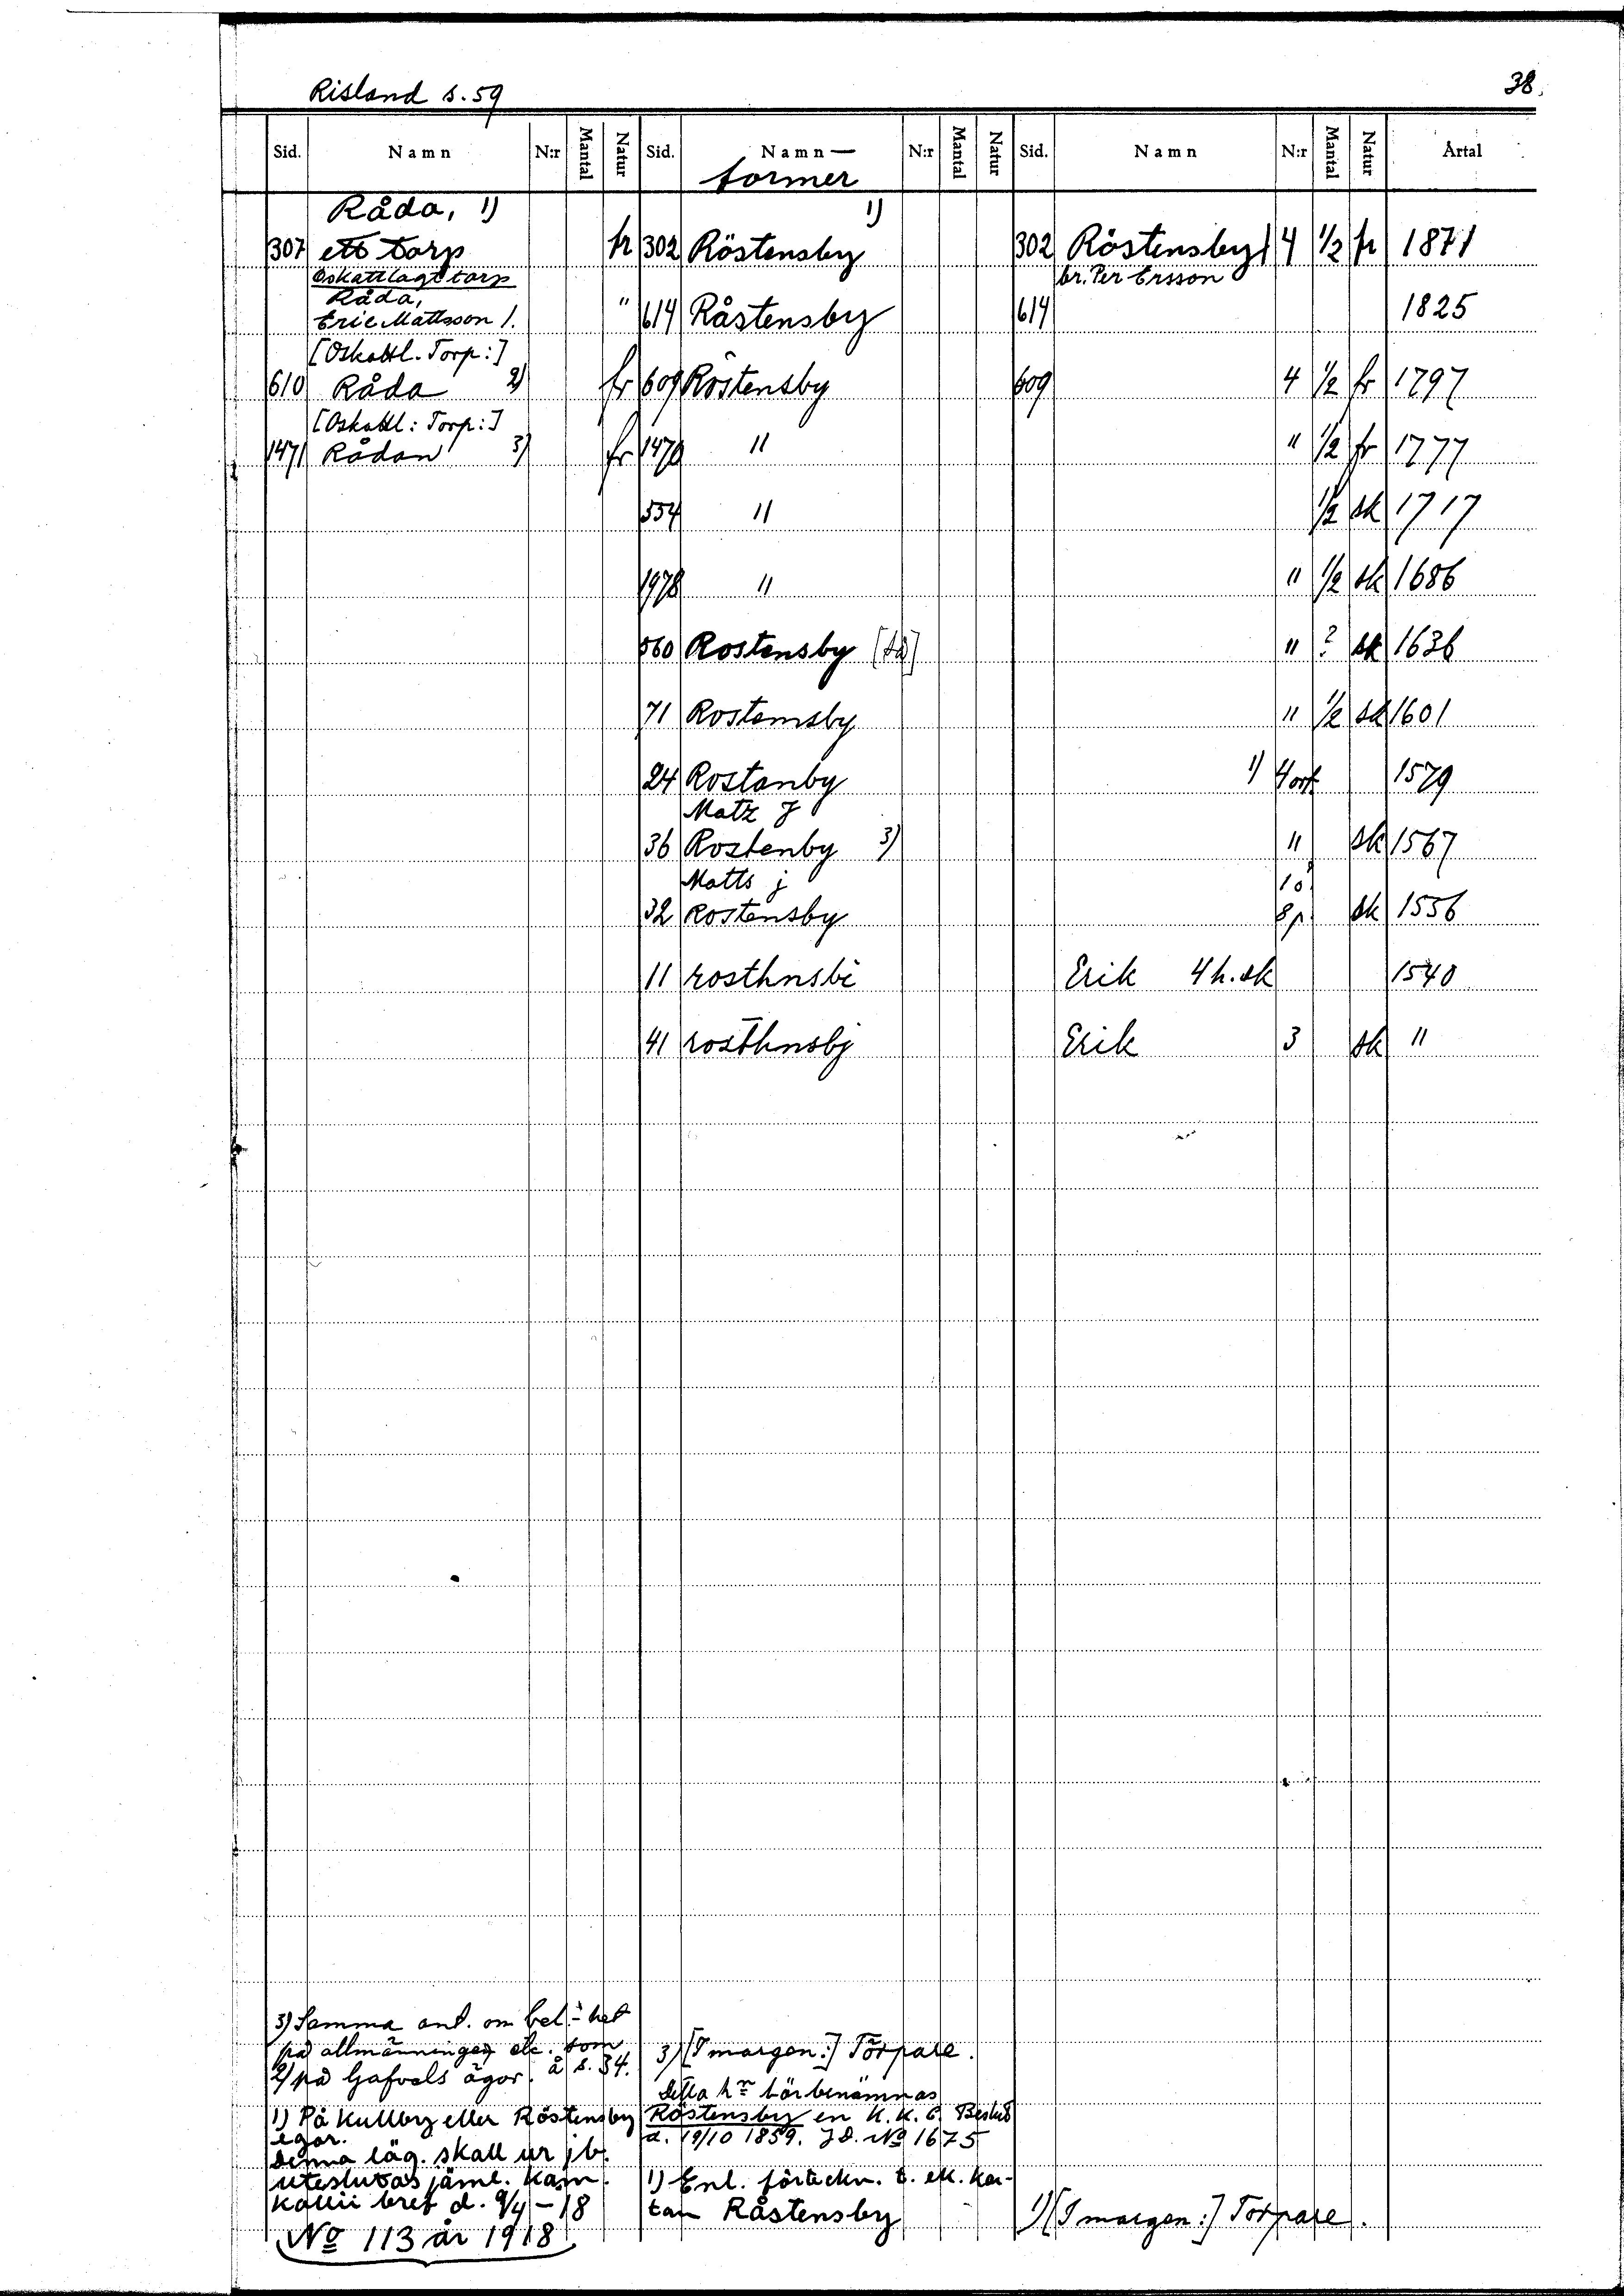 Risland s. 59
38.
Sid. Namn N:r Mantal Natur Sid. Namn— N:r Mantal Natur Sid. Namn N:r Mantal Natur Årtal
former
Råda, 1) 1)
307 ett torp fr 302 Röstensby 302 Röstensby 4 1/2 fr 1871
Oskattlagt torp br. Per Ersson
Råda,
Eric Mattsson /. " 614 Råstensby 614 1825
[Oskattl. Torp:]
610 Råda 2) fr 609 Röstensby 609 4 1/2 fr 1797
[Oskattl: Torp:]
1471 Rådan 3) fr 1470 " " 1/2 fr 1777
554 " 1/2 sk 1717
1978 " " 1/2 sk 1686
560 Rostensby [så] " ? sk 1636
71 Rostemsby " 1/2 sk 1601
24 Rostanby 1) 4 ort 1579
Matz J
36 Rostenby 3) " sk 1567
Matts j 1 ö
32 Rostensby 8 p sk 1556
11 rosthnsbi Erik 4 h. sk 1540
41 rosthnsbj Erik 3 sk "
3) Samma ant. om bel.-het
på allmänningen etc. som
å s. 34.
2) på Gafvels ägor.
1) På Kullby eller Röstensby
egor.
Denna läg. skall ur jb.
uteslutas jäml. Kam.
kollii bref d. 9/4 - 18
No 113 år 1918
3) [I margen:] Törpare.
detta hn bör benämnas
Röstensby en K. K. C. Beslut
d. 19/10 1859. JD. No 1675
1) Enl. förteckn. t. ek. kar-
tan Råstensby
1) [I margen:] Torpare.